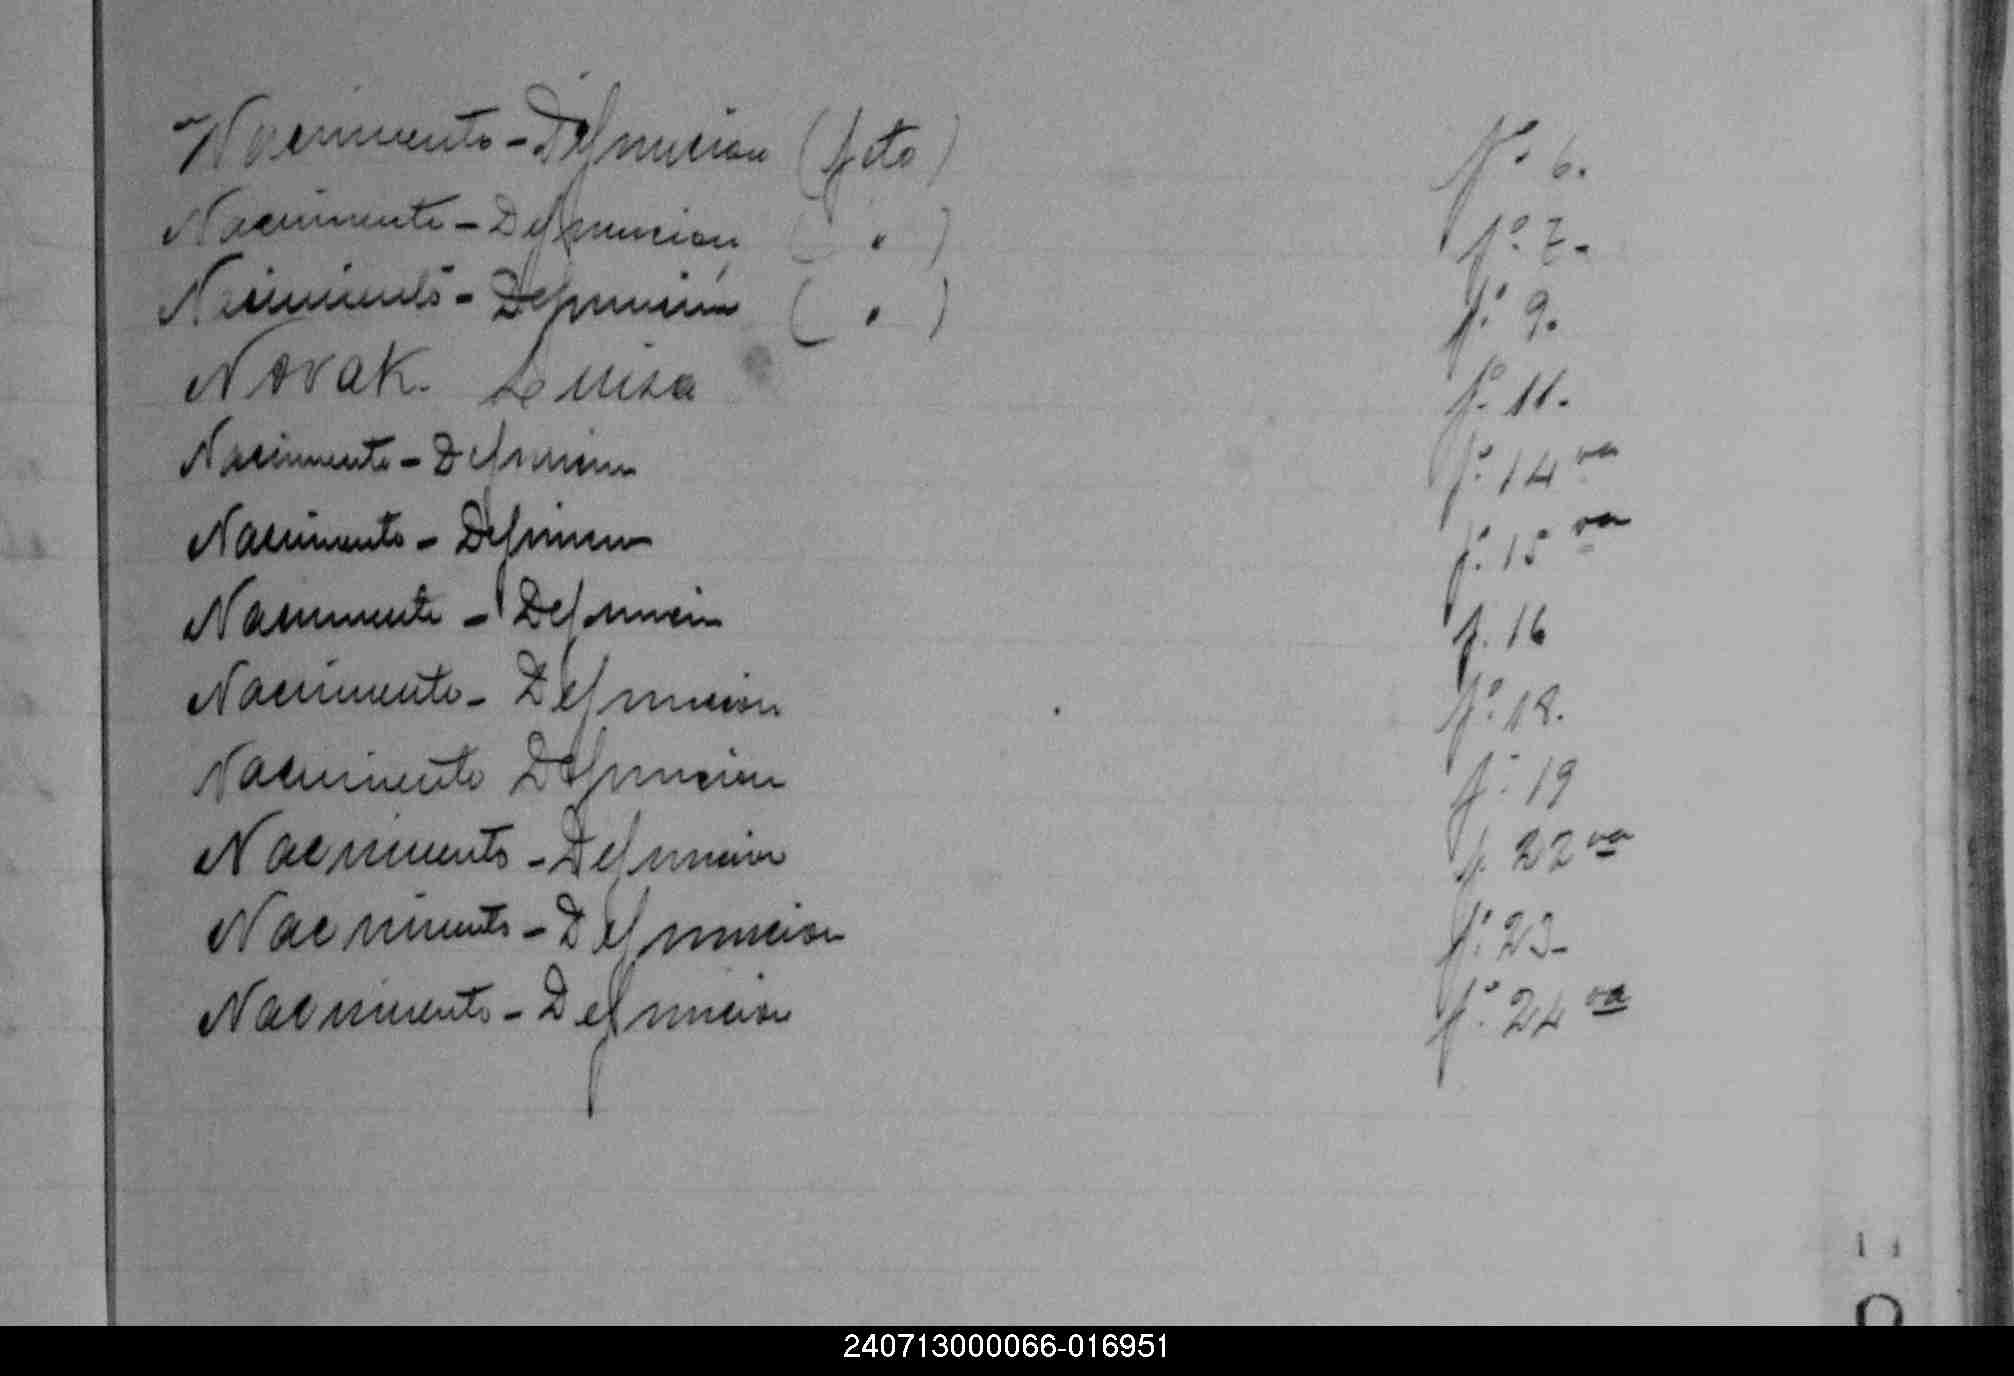 Nacimiento - Defunción (feto) fº. 6.
Nacimiento - Defunción ( " ) fº. 7-
Nacimiento - Defunción ( " ) fº. 9.
Novak. Luisa fº. 11.
Nacimiento - Defunción fº. 14 va
Nacimiento - Defunción fº. 15 va
Nacimiento - Defunción f. 16
Nacimiento - Defunción fº. 18.
Nacimiento Defunción fº. 19
Nacimiento - Defunción f. 22 va
Nacimiento - Defunción fº. 23-
Nacimiento - Defunción fº. 24 va
240713000066-016951